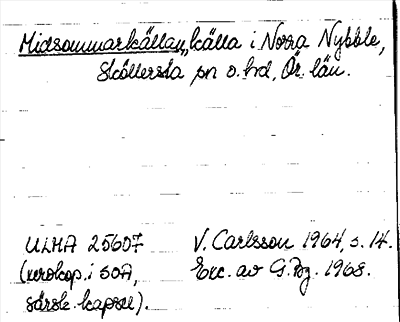 Midsommarkällan, källa i Norra Nybble,
Sköllersta sn o. hd, Ör. län.
ULMA 25607 V. Carlsson 1964, s. 14.
(xerokop. i SOA, Exc. av G. Bg. 1968.
särsk. kapsel).